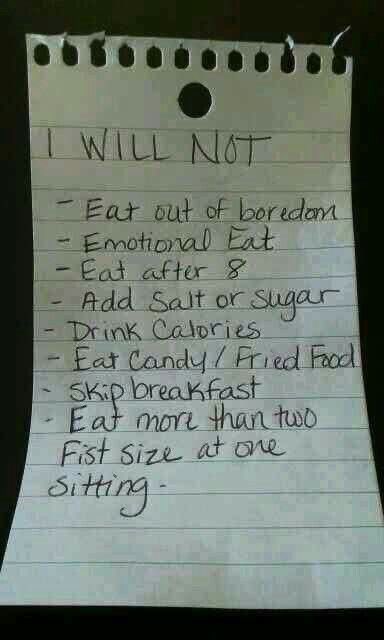 I WILL NOT
- Eat out of boredom
- Emotional Eat
- Eat after 8
- Add Salt or sugar
- Drink Calories
- Eat Candy / Fried Food
- Skip breakfast
- Eat more than two
Fist size at one
sitting.